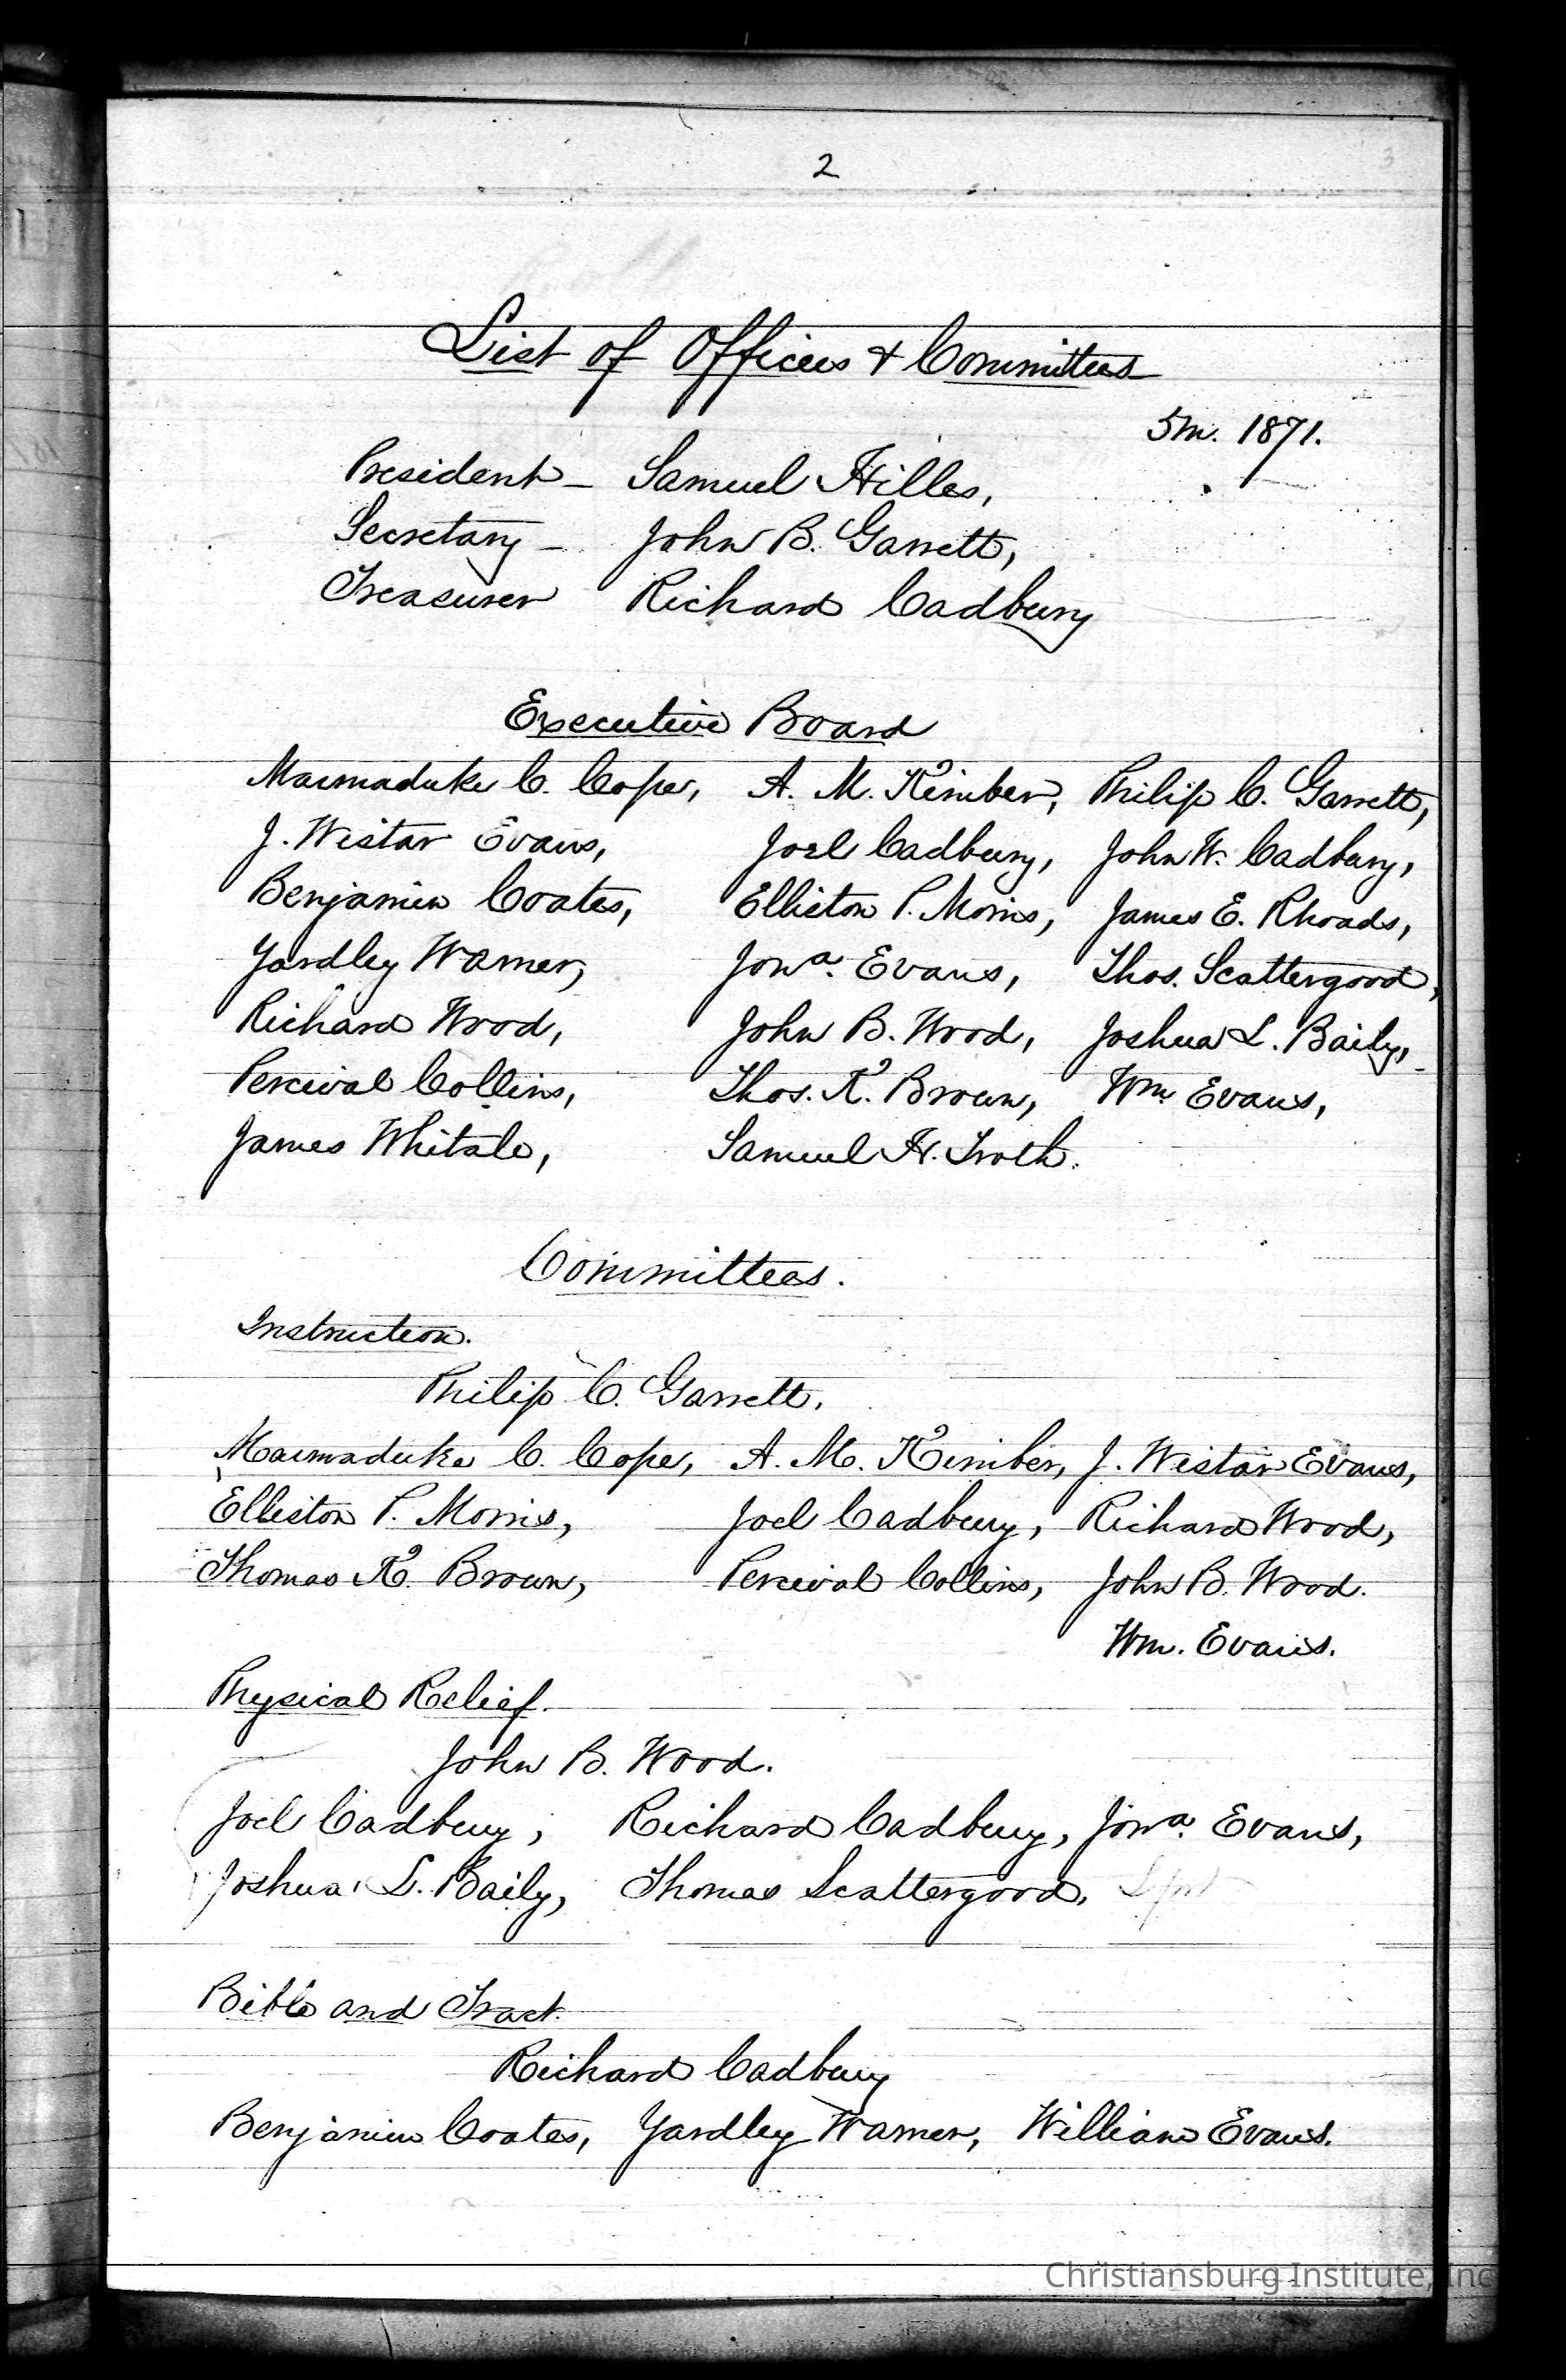 2
List of Officers & Committees
5m. 1871.
President - Samuel Hilles,
Secretary - John B. Garrett,
Treasurer Richard Cadbury
Executive Board
Marmaduke C. Cope, A. M. Kimber, Philip C. Garrett,
J. Wistar Evans, Joel Cadbury, John W. Cadbury,
Benjamin Coates, Elliston P. Morris, James E. Rhoads,
Yardley Warner, Jona. Evans, Thos. Scattergood,
Richard Wood, John B. Wood, Joshua L. Baily,
Percival Collins, Thos. K. Brown, Wm Evans,
James Whitale, Samuel H. Troth.
Committees.
Instruction.
Philip C. Garrett,
Marmaduke C. Cope, A. M. Kimber, J. Wistar Evans,
Elliston P. Morris, Joel Cadbury, Richard Wood,
Thomas K. Brown, Percival Collins, John B. Wood.
Wm. Evans.
Physical Relief.
John B. Wood.
Joel Cadbury, Richard Cadbury, Jona. Evans,
Joshua L. Baily, Thomas Scattergood,
Bible and Tract.
Richard Cadbury
Benjamin Coates, Yardley Warner, William Evans.
Christiansburg Institute, Inc